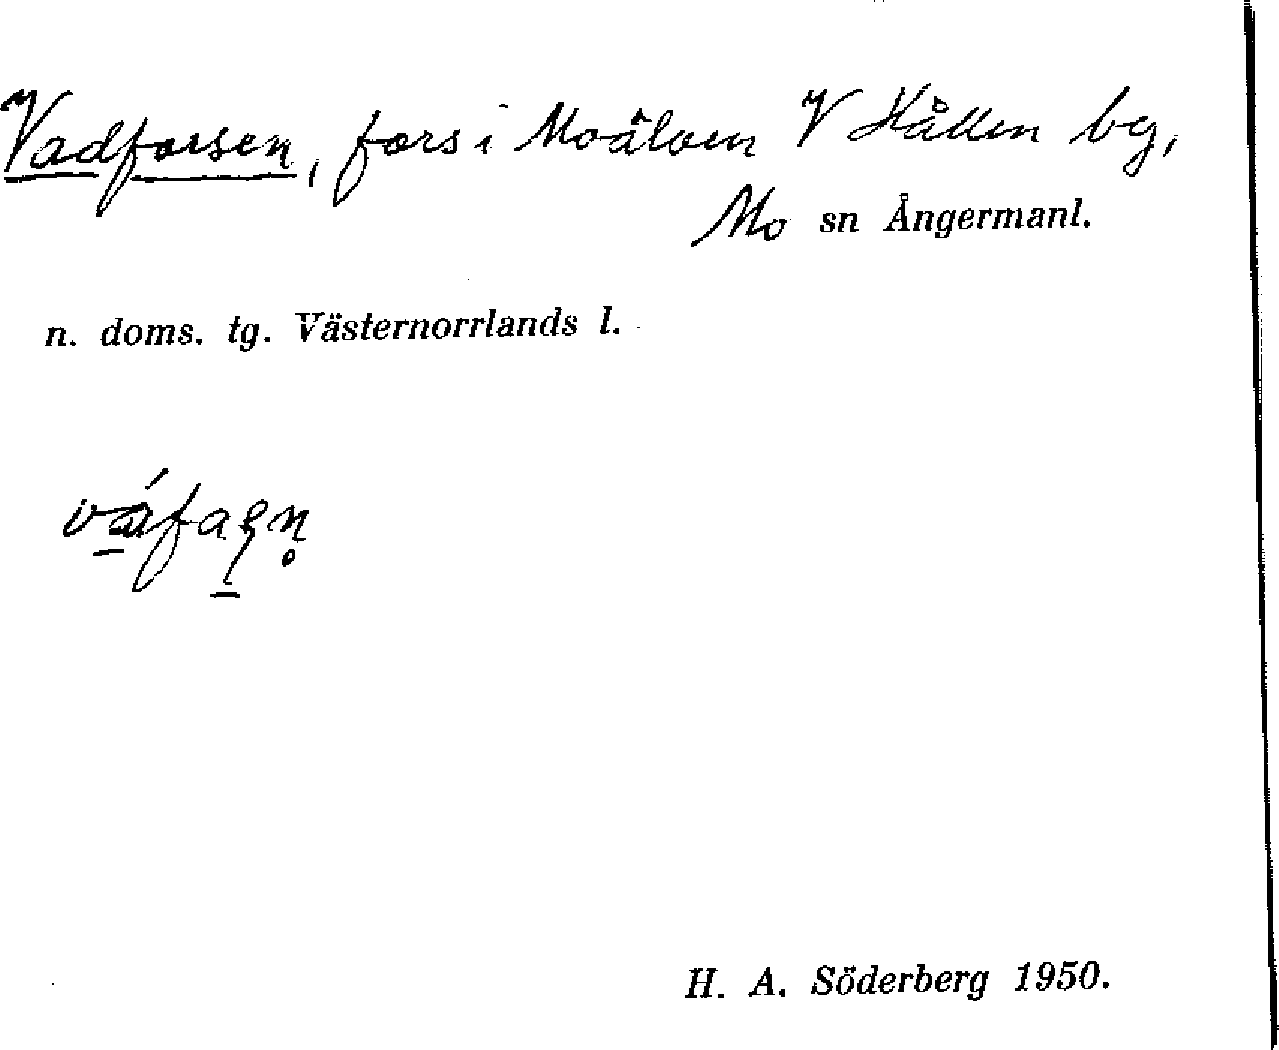 Vadforsen, fors i Moälven V Hållen by,
Mo sn Ångermanl.
n. doms. tg. Västernorrlands l.
H. A. Söderberg 1950.